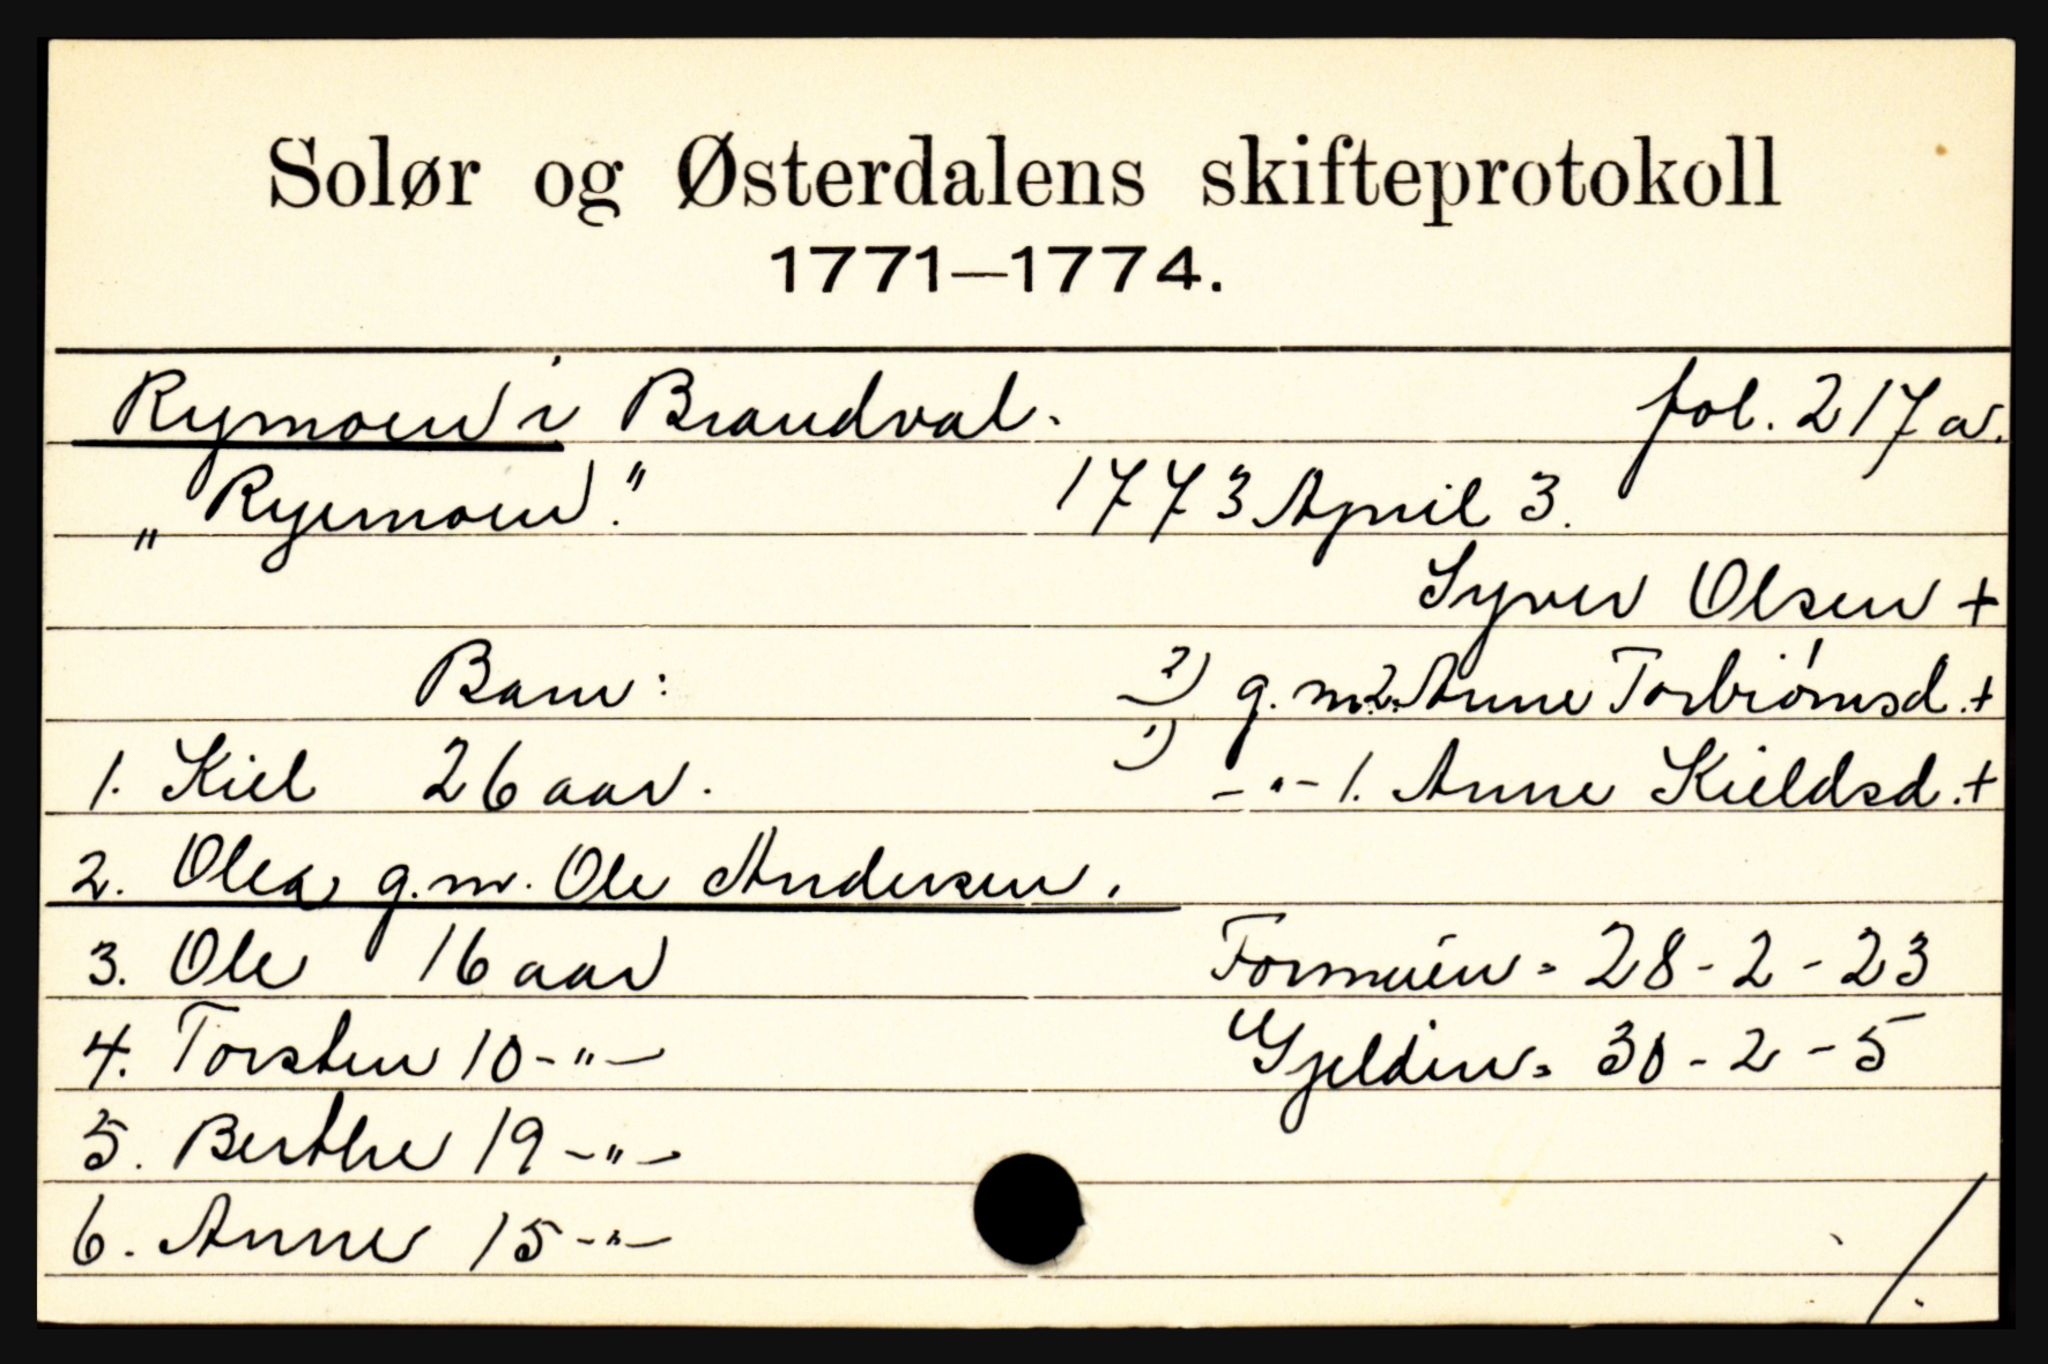 Solør og Østerdalens skifteprotokoll
1771—1774.
Rymoen i Brandval. fol. 217 a.
„Ryemoen." 1773 April 3.
Syver Olsen +
Barn: 2) g. m. 2. Anne Torbiørnsd. +
1. Kiel 26 aar. 1) -"- 1. Anne Kieldsd. +
2. Olea g. m. Ole Andersen.
3. Ole 16 aar Formuen = 28 - 2 - 23
4. Torsten 10 -"- Gjelden = 30 - 2 - 5
5. Berthe 19 -"-
6. Anne 15 -"-
/.